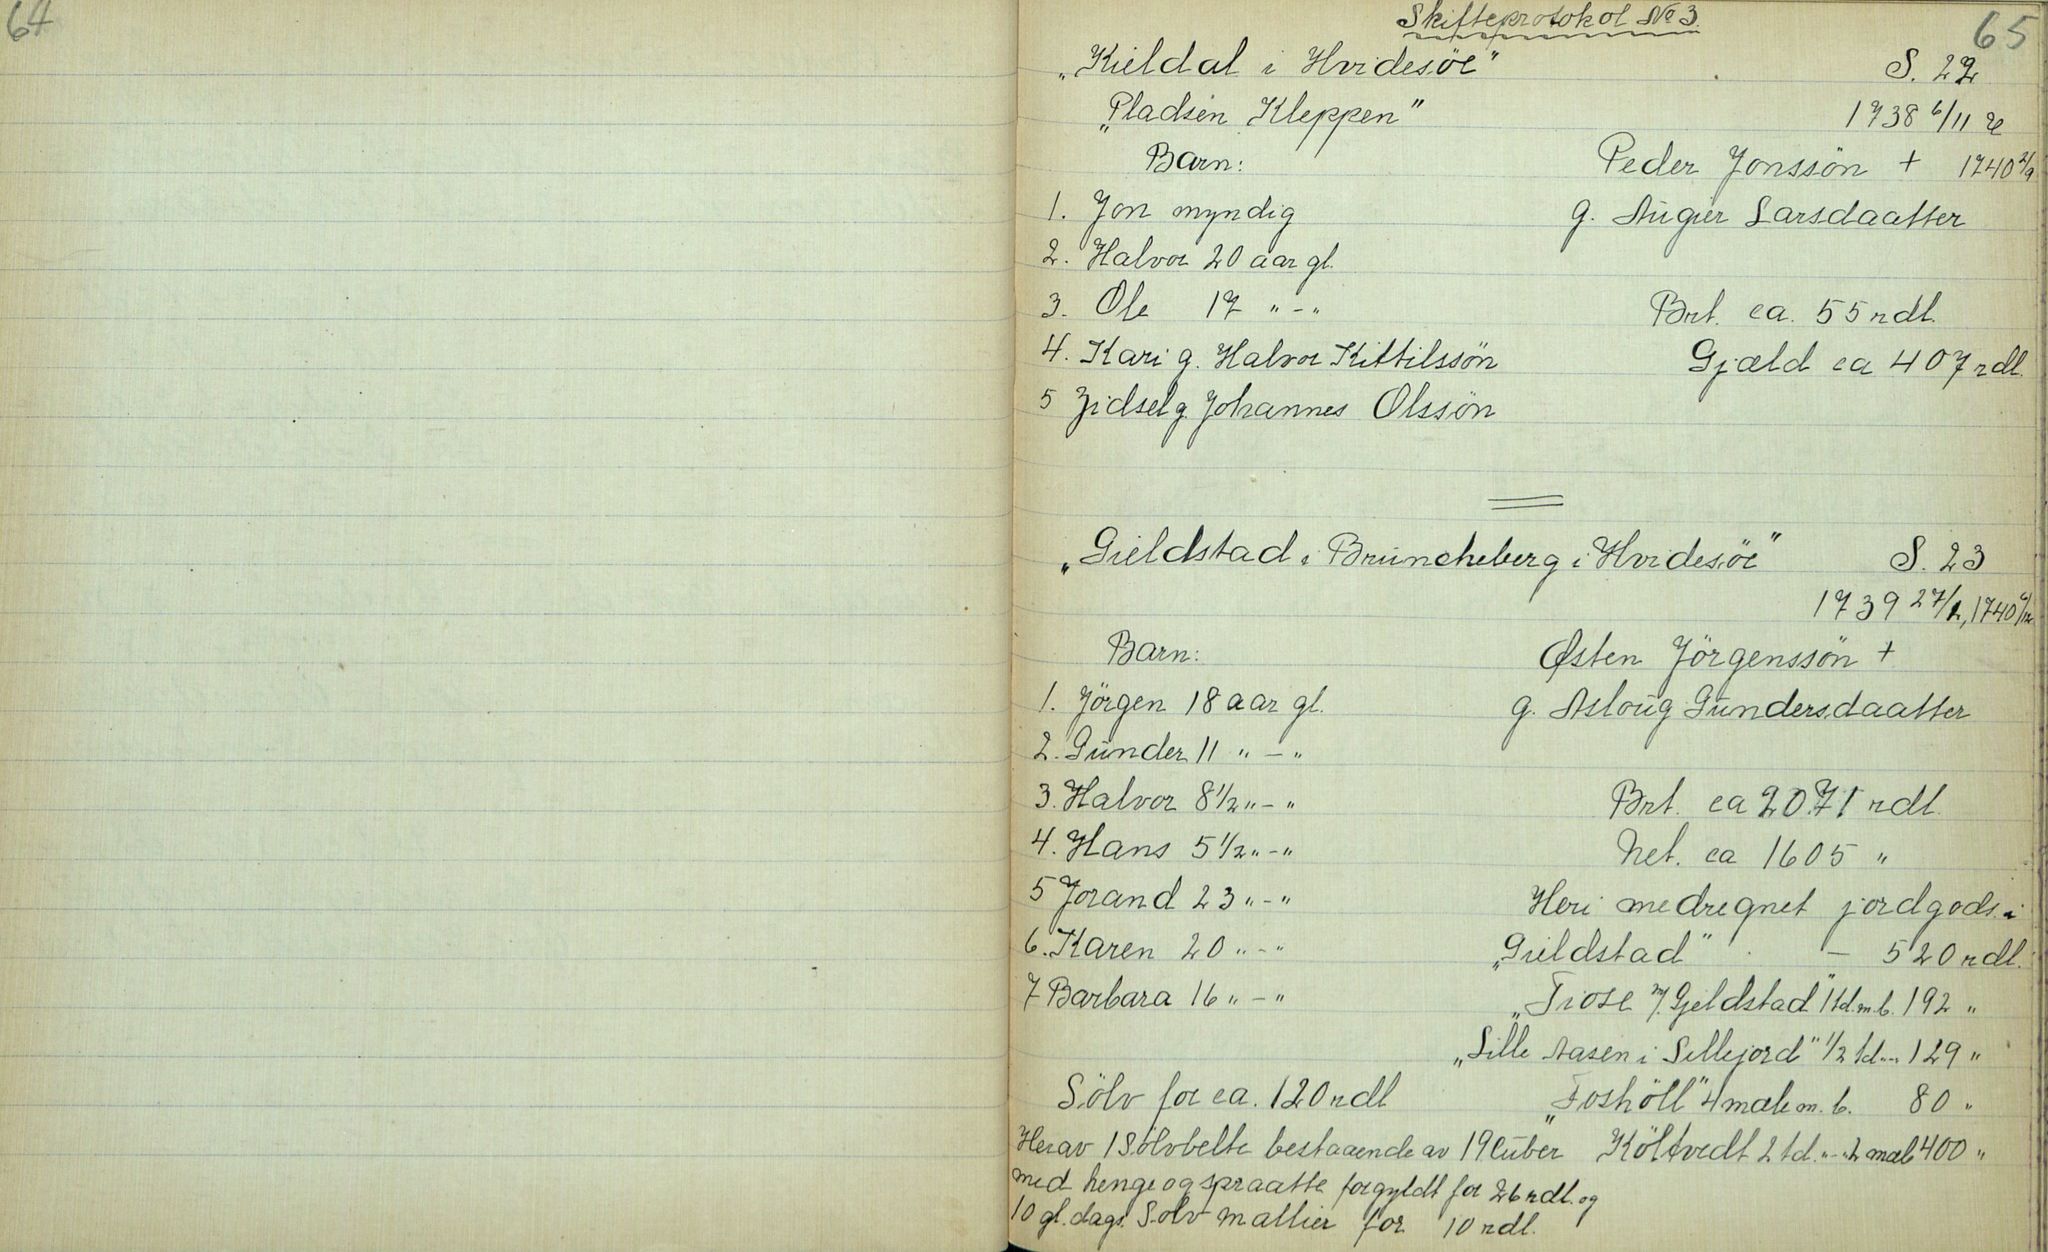 64
Skifteprotokol No 3.
65
„Kieldal i Hvidesöe" S. 22
„Pladsen Kleppen" 1738 6/11
Barn: Peder Jonssön + 1740 2/9
1. Jon myndig g. Auger Larsdaatter
2. Halvor 20 aar gl.
3. Ole 17 " - "
Brt. ca. 55 rdl.
4. Kari g. Halvor Kittilssön Gjæld ca 407 rdl.
5 Zidsel g. Johannes Olssön
„Gieldstad i Bruncheberg i Hvidesöe" S. 23
1739 27/2, 1740
Barn: Østen Jörgenssön +
1. Jörgen 18 aar gl. g. Asloug Gundersdaatter
2. Gunder 11 " - "
3. Halvor 8 1/2 " - " Brt. ca 2071 rdl.
4. Hans 5 1/2 " - " Net. ca 1605 "
5 Jorand 23 " - " Heri medregnet jordgods i
6. Karen 20 " - " „Gieldstad" - 520 rdl.
7 Barbara 16 " - " „Fiose m/ Gjeldstad" 1 td. m. b. 192 "
„Lille Aasen i Sillejord" 1/2 td. - " 129 "
Sölv for ca. 120 rdl „Foshöll" 4 mæle m. b. 80 "
Herav 1 Sölvbelte bestaaende av 19 Cuber Költvedt 2 td. " - " 2 mæle 400 "
med henge og spraatte forgyldt for 26 rdl. og
10 gl. dags. Sölv mallier for 10 rdl.